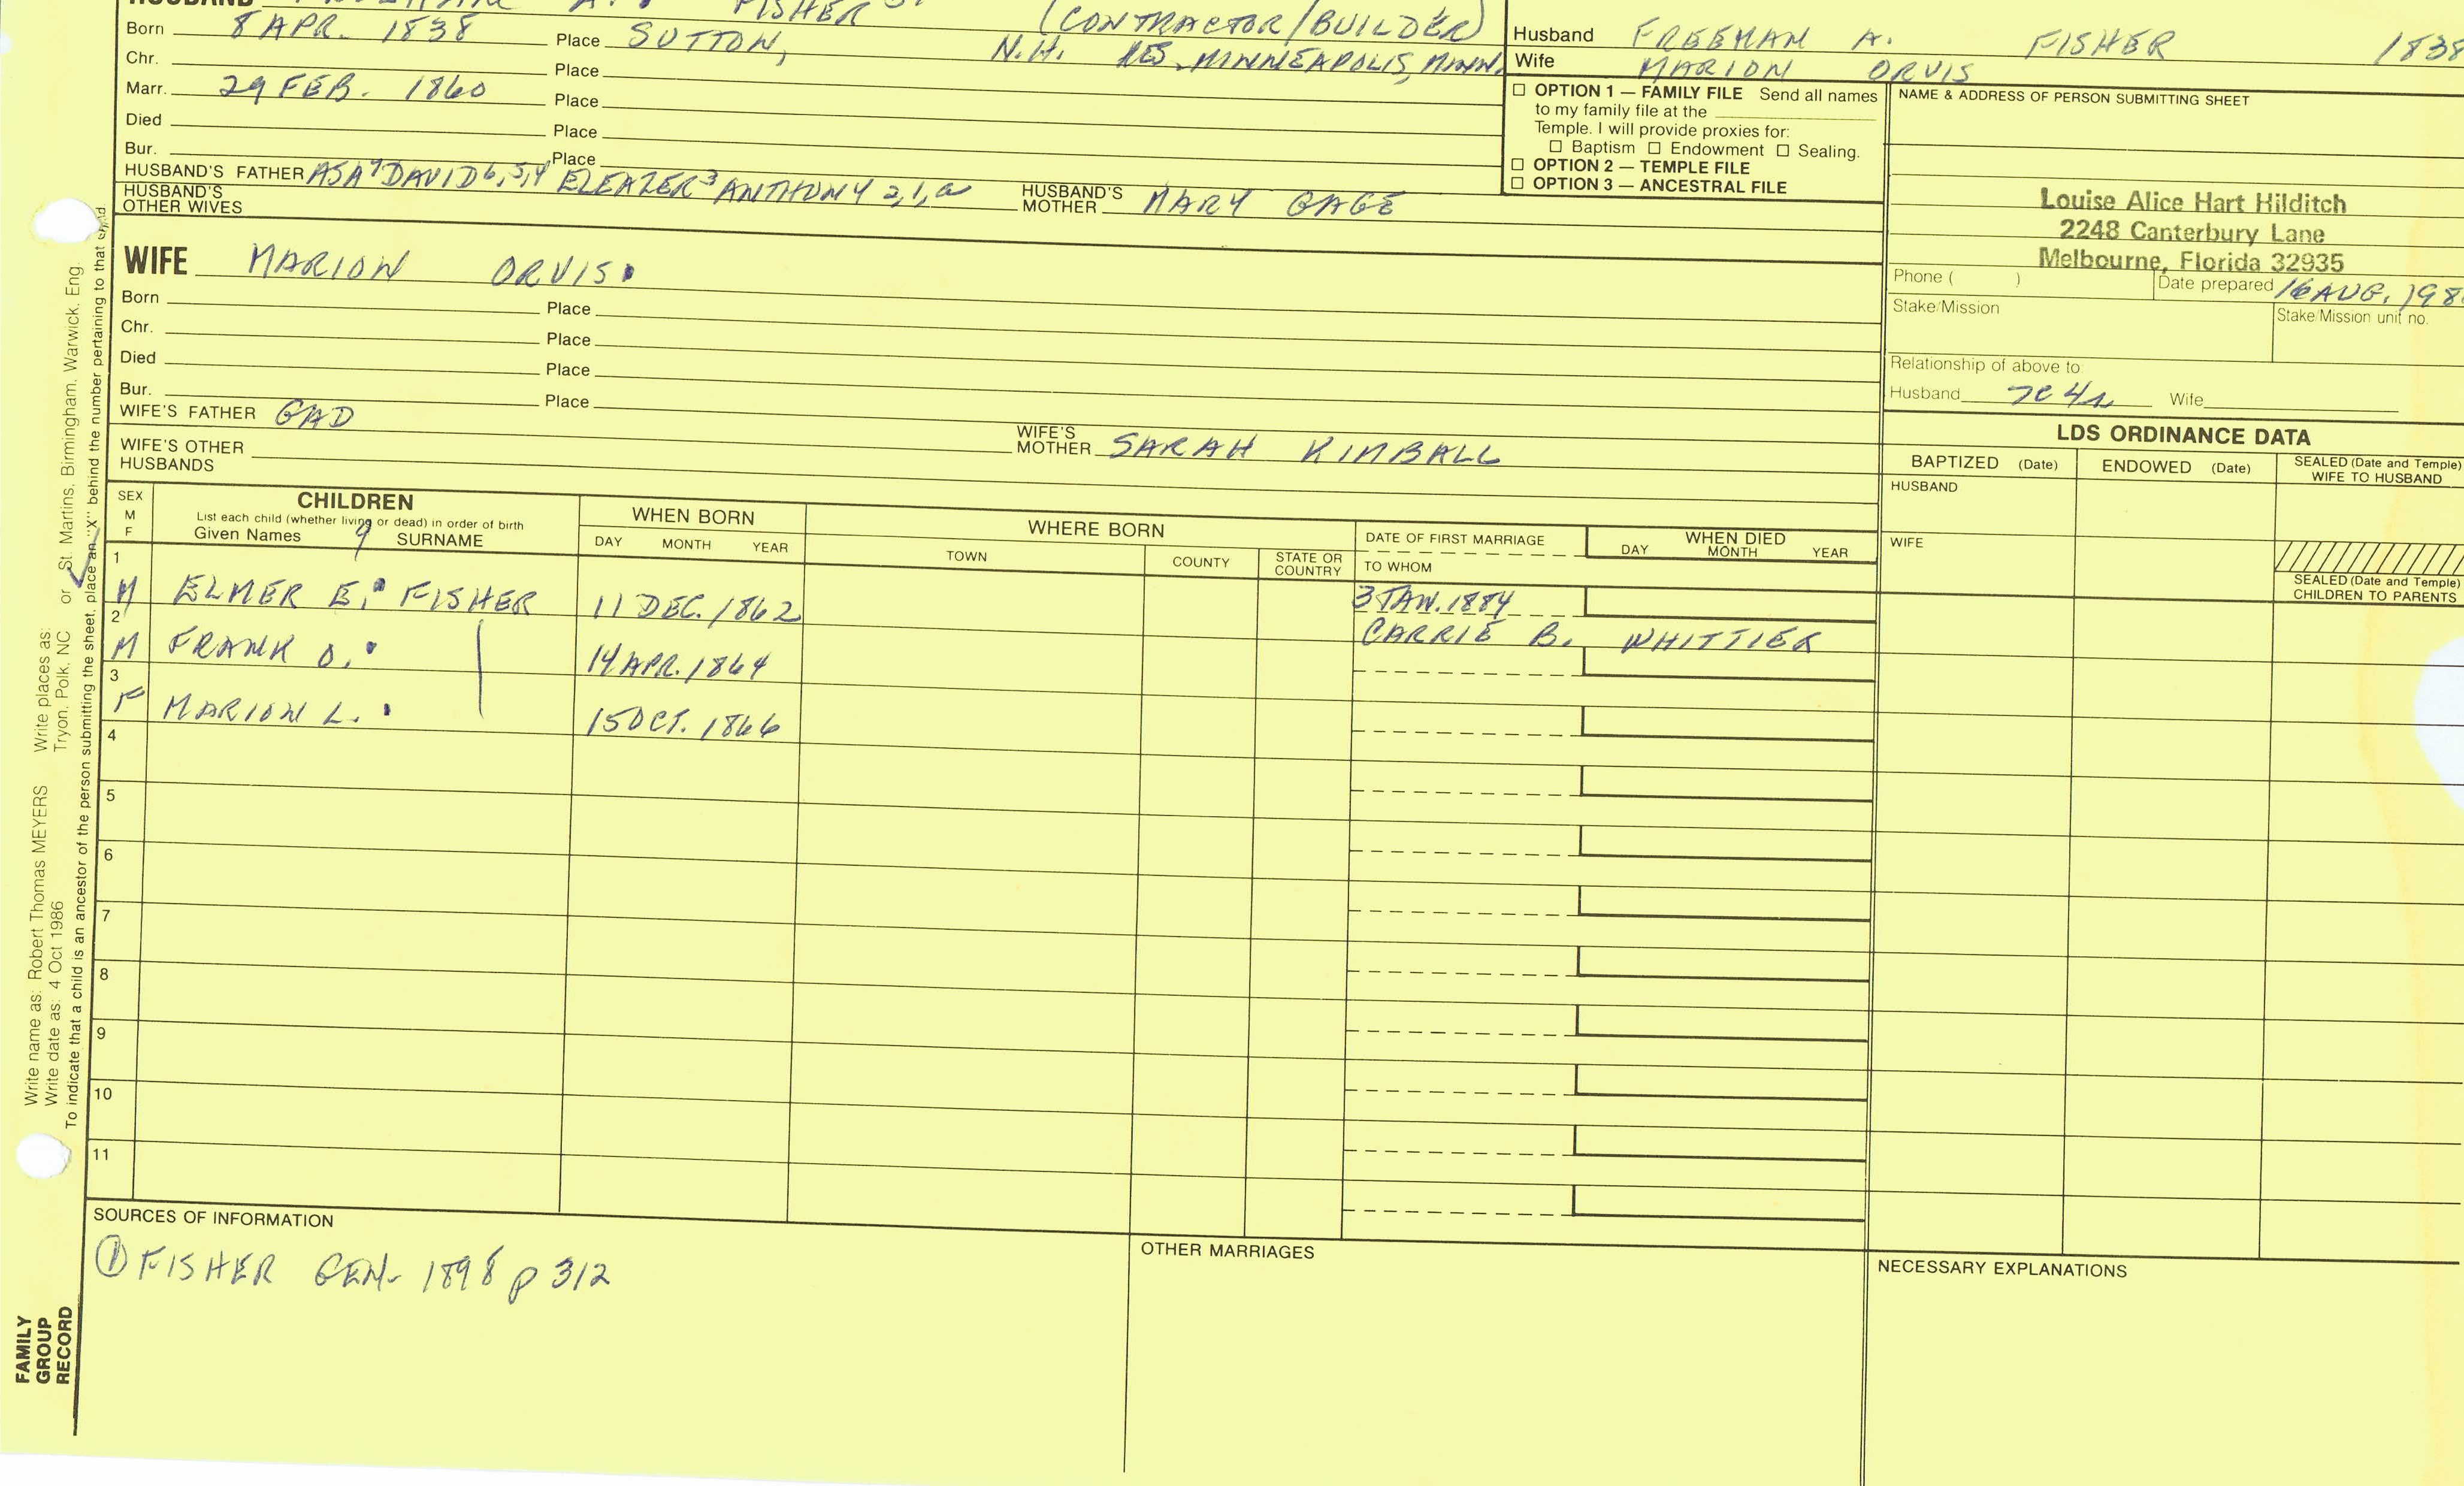 FISHER
(CONTRACTOR/BUILDER)
Born 8 APR. 1838 Place SUTTON, N.H. RES. MINNEAPOLIS, MINN.
Chr. Place
Marr. 29 FEB. 1860 Place
Died Place
Bur. Place
HUSBAND'S FATHER ASA 7 DAVID 6,5,4 ELEAZER 3 ANTHONY 2,1,a HUSBAND'S MOTHER MARY GAGE
HUSBAND'S OTHER WIVES
Husband FREEMAN A. FISHER 1838
Wife MARION ORVIS
☐ OPTION 1 — FAMILY FILE Send all names
to my family file at the
Temple. I will provide proxies for:
☐ Baptism ☐ Endowment ☐ Sealing.
☐ OPTION 2 — TEMPLE FILE
☐ OPTION 3 — ANCESTRAL FILE
NAME & ADDRESS OF PERSON SUBMITTING SHEET
Louise Alice Hart Hilditch
2248 Canterbury Lane
Melbourne, Florida 32935
Phone ( ) Date prepared 16 AUG. 198
Stake/Mission Stake/Mission unit no.
Relationship of above to
Husband 7C4R Wife
WIFE MARION ORVIS
Born Place
Chr. Place
Died Place
Bur. Place
WIFE'S FATHER GAD WIFE'S MOTHER SARAH KIMBALL
WIFE'S OTHER HUSBANDS
LDS ORDINANCE DATA
BAPTIZED (Date) ENDOWED (Date) SEALED (Date and Temple) WIFE TO HUSBAND
HUSBAND
WIFE
SEALED (Date and Temple) CHILDREN TO PARENTS
SEX M F
CHILDREN
List each child (whether living or dead) in order of birth
Given Names 9 SURNAME
WHEN BORN
DAY MONTH YEAR
WHERE BORN
TOWN COUNTY STATE OR COUNTRY
DATE OF FIRST MARRIAGE
TO WHOM
WHEN DIED
DAY MONTH YEAR
1 M ELMER E. FISHER 11 DEC. 1862 3 JAN. 1884
CARRIE B. WHITTIER
2 M FRANK O. 14 APR. 1864
3 F MARION L. 15 OCT. 1866
4
5
6
7
8
9
10
11
SOURCES OF INFORMATION
① FISHER GEN. 1898 p 312
OTHER MARRIAGES
NECESSARY EXPLANATIONS
Write name as: Robert Thomas MEYERS Write places as: or St. Martins, Birmingham, Warwick, Eng.
Write date as: 4 Oct 1986 Tryon, Polk, NC
To indicate that a child is an ancestor of the person submitting the sheet, place an "X" behind the number pertaining to that child.
FAMILY
GROUP
RECORD